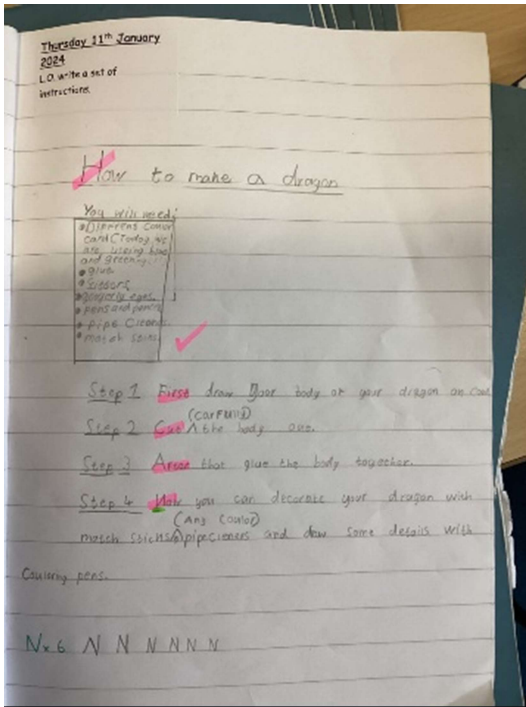 Thursday 11th January
2024
L.O. write a set of
instructions.
How to make a dragon
You will need:
•Different Colour
card (Today we
are using blue
and green)
•glue
•Scissors
•googely eyes
•pens and pencils
•pipe Cleaners
•match sticks
Step 1 First draw your body of your dragon on Card
(carfully)
Step 2 Cut ^ the body out.
Step 3 After that glue the body together.
Step 4 Now you can decorate your dragon with
(Any Coulor)
match sticks, pipecleners and draw some details with
Coulering pens.
Nx6 N N N N N N